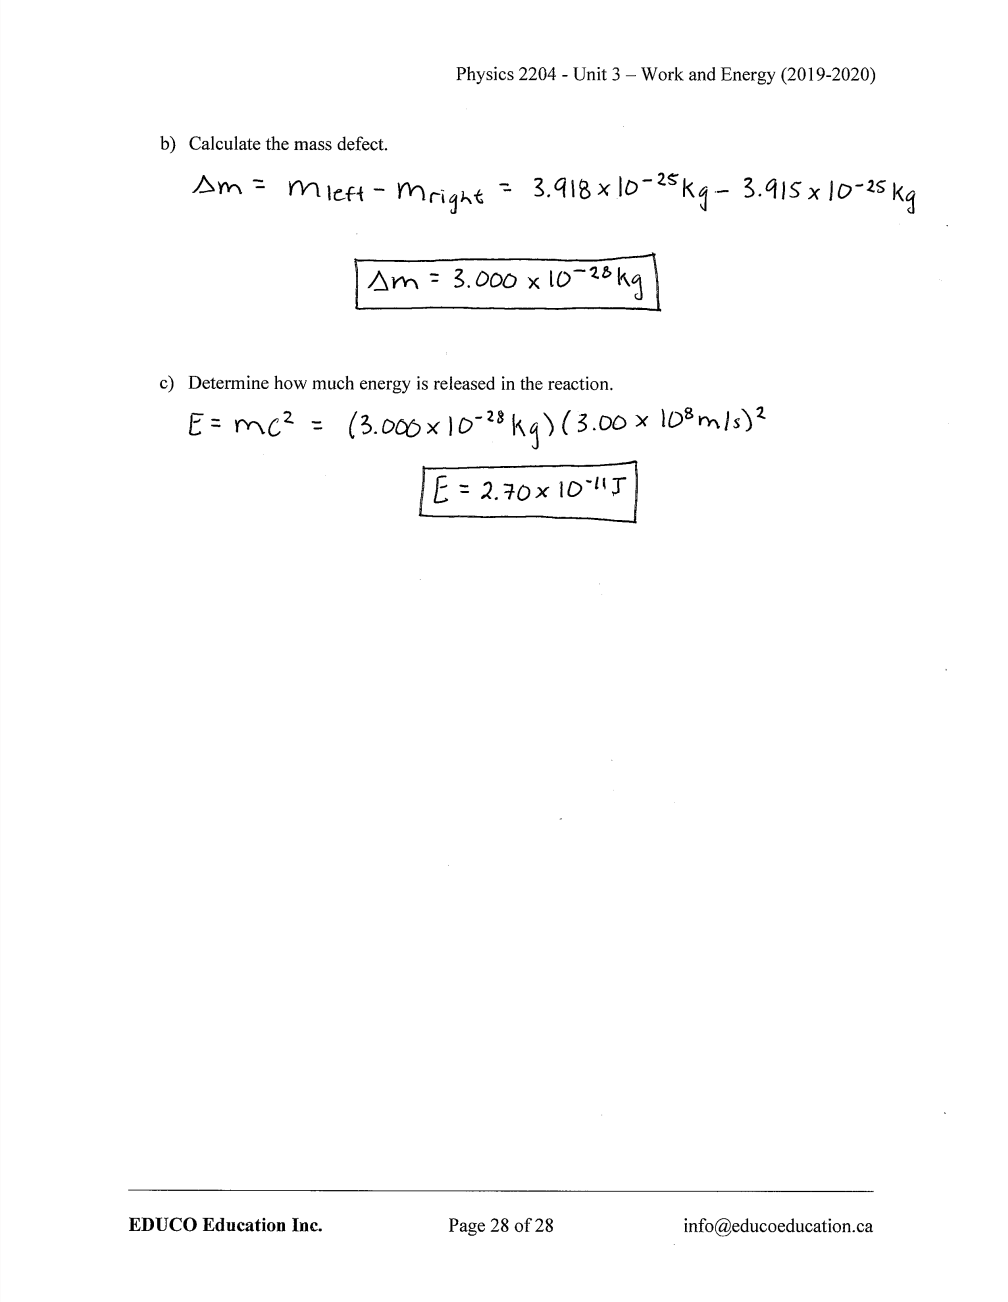 Physics 2204 - Unit 3 – Work and Energy (2019-2020)
b) Calculate the mass defect.
Δm = m left - m right = 3.918 x 10⁻²⁵ kg - 3.915 x 10⁻²⁵ kg
Δm = 3.000 x 10⁻²⁸ kg
c) Determine how much energy is released in the reaction.
E = mc² = (3.000 x 10⁻²⁸ kg)(3.00 x 10⁸ m/s)²
E = 2.70 x 10⁻¹¹ J
EDUCO Education Inc. Page 28 of 28 info@educoeducation.ca